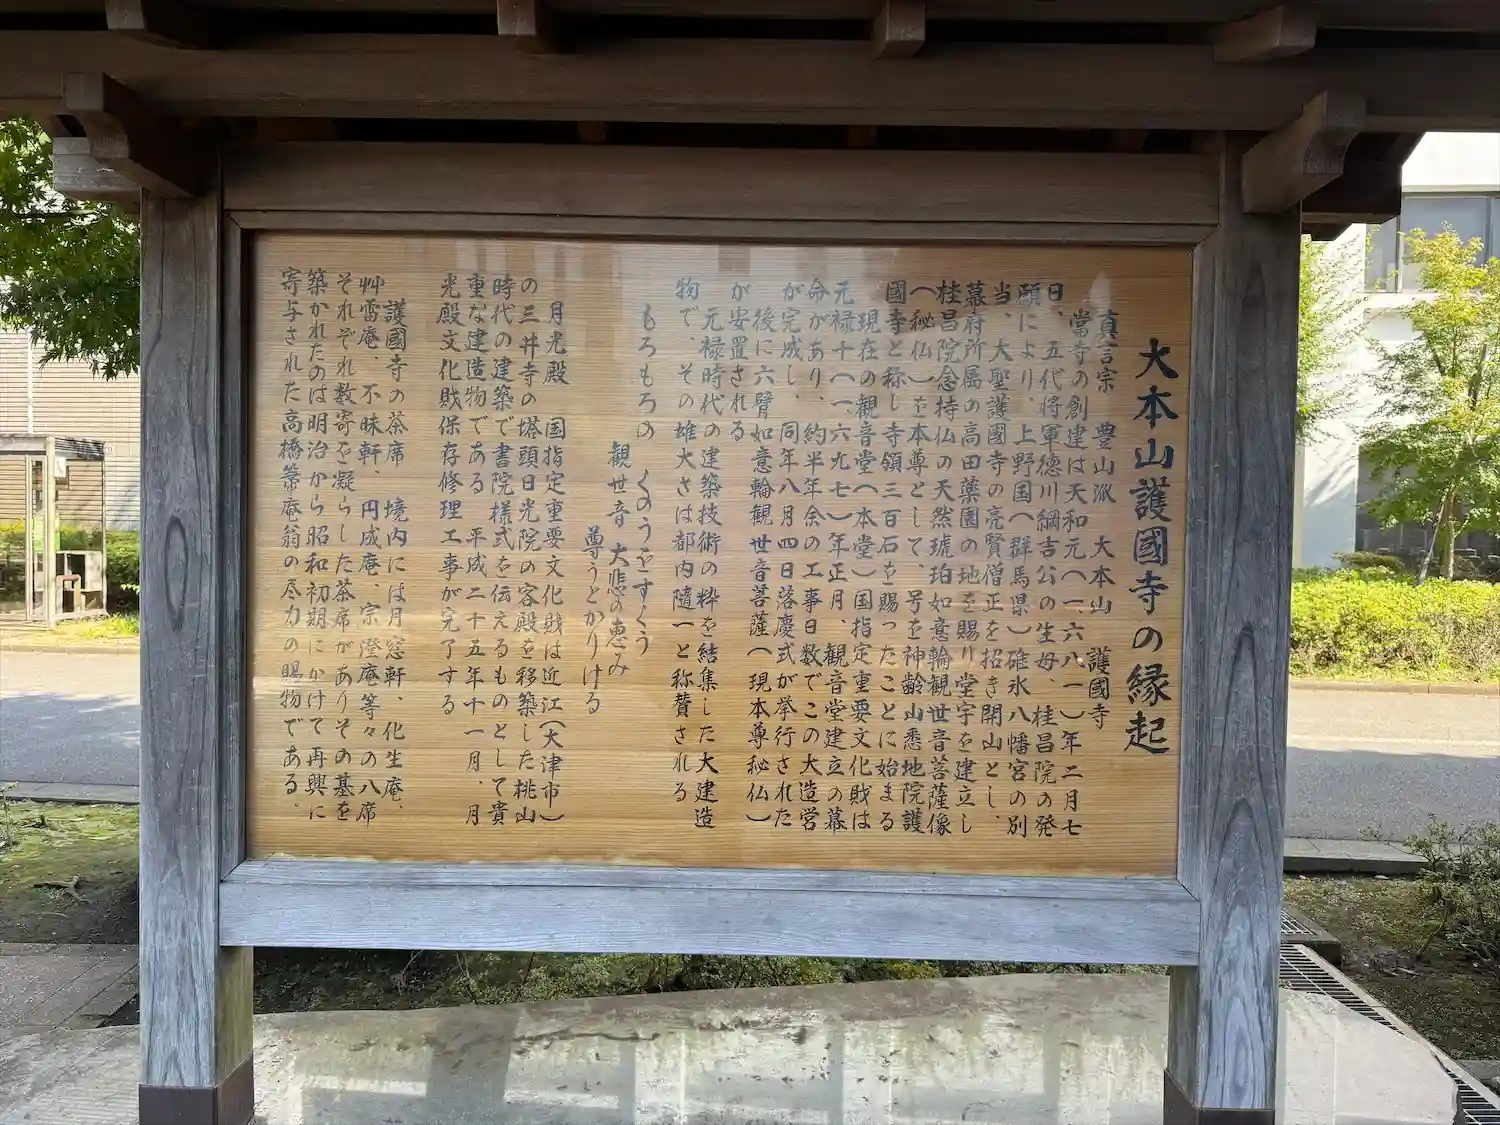 大本山護國寺の縁起
真言宗 豊山派 大本山 護國寺
当寺の創建は天和元(一、六八一)年二月七
日、五代将軍徳川綱吉公の生母、桂昌院の発
願により、上野国(群馬県)碓氷八幡宮の別
当、大聖護國寺の亮賢僧正を招き開山とし、
幕府所属の高田薬園の地を賜り堂宇を建立し
桂昌院念持仏の天然琥珀如意輪観世音菩薩像
(秘仏)を本尊として、号を神齢山悉地院護
國寺と称し寺領三百石を賜ったことに始まる
現在の観音堂(本堂)国指定重要文化財は
元禄十(一、六九七)年正月、観音堂建立の幕
命があり、約半年余の工事日数でこの大造営
が完成し、同年八月四日落慶式が挙行された
後に六臂如意輪観世音菩薩(現本尊秘仏)
が安置される
元禄時代の建築技術の粋を結集した大建造
物で、その雄大さは都内随一と称賛される
もろもろの くのうをすくう
観世音 大悲の恵み
尊うとかりける
月光殿 国指定重要文化財は近江(大津市)
の三井寺の塔頭日光院の客殿を移築した桃山
時代の建築で書院様式を伝えるものとして貴
重な建造物である 平成二十五年十一月、月
光殿文化財保存修理工事が完了する
護國寺の茶席 境内には月窓軒、化生庵、
艸雷庵、不昧軒、円成庵、宗澄庵等々の八席
それぞれ数寄を凝らした茶席がありその基を
築かれたのは明治から昭和初期にかけて再興に
寄与された高橋箒庵翁の尽力の賜物である。